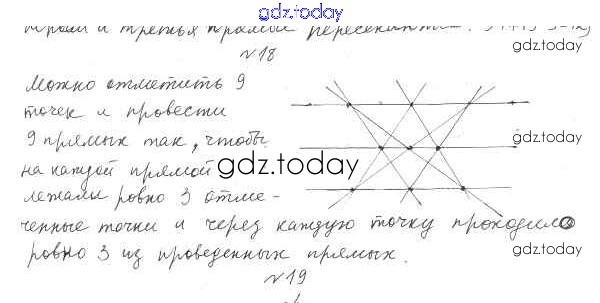 gdz.today
и третья прямые
gdz.today
№18
Можно отметить 9
точек и провести
9 прямых так, чтобы
gdz.today
на каждой прямой
gdz.today
лежали ровно 3 отме-
ченные точки и через каждую точку проходило
gdz.today
ровно 3 из проведенных прямых.
gdz.today
№19